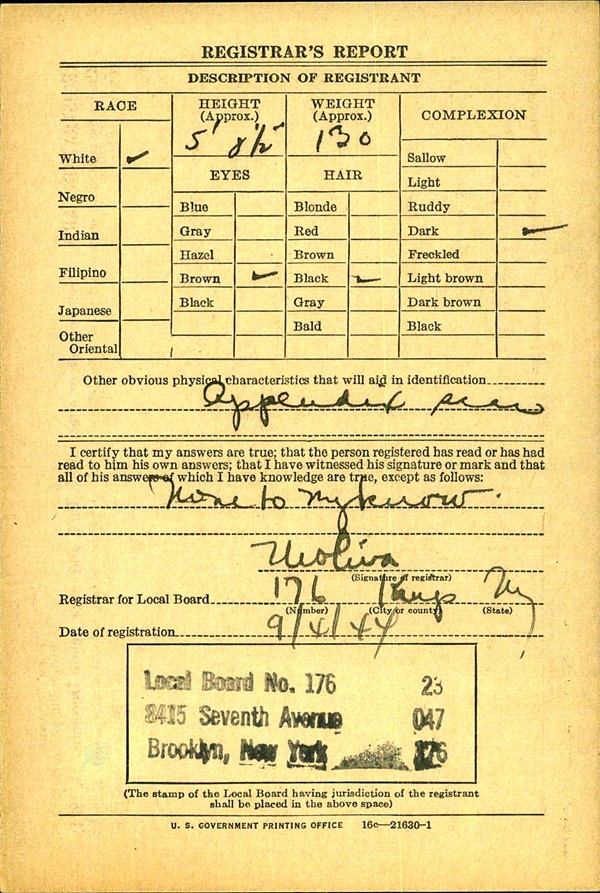 REGISTRAR'S REPORT
DESCRIPTION OF REGISTRANT
RACE
White ✓
Negro
Indian
Filipino
Japanese
Other
Oriental
HEIGHT
(Approx.)
5' 8½"
WEIGHT
(Approx.)
130
EYES
Blue
Gray
Hazel
Brown ✓
Black
HAIR
Blonde
Red
Brown
Black ✓
Gray
Bald
COMPLEXION
Sallow
Light
Ruddy
Dark ✓
Freckled
Light brown
Dark brown
Black
Other obvious physical characteristics that will aid in identification
Appendix scar
I certify that my answers are true; that the person registered has read or has had
read to him his own answers; that I have witnessed his signature or mark and that
all of his answers of which I have knowledge are true, except as follows:
None to my know.
(Signature of registrar)
Registrar for Local Board 176 Kings Ny
(Number) (City or county) (State)
Date of registration 9/4/44
Local Board No. 176 23
8415 Seventh Avenue 047
Brooklyn, New York 176
(The stamp of the Local Board having jurisdiction of the registrant
shall be placed in the above space)
U. S. GOVERNMENT PRINTING OFFICE 16c—21630-1